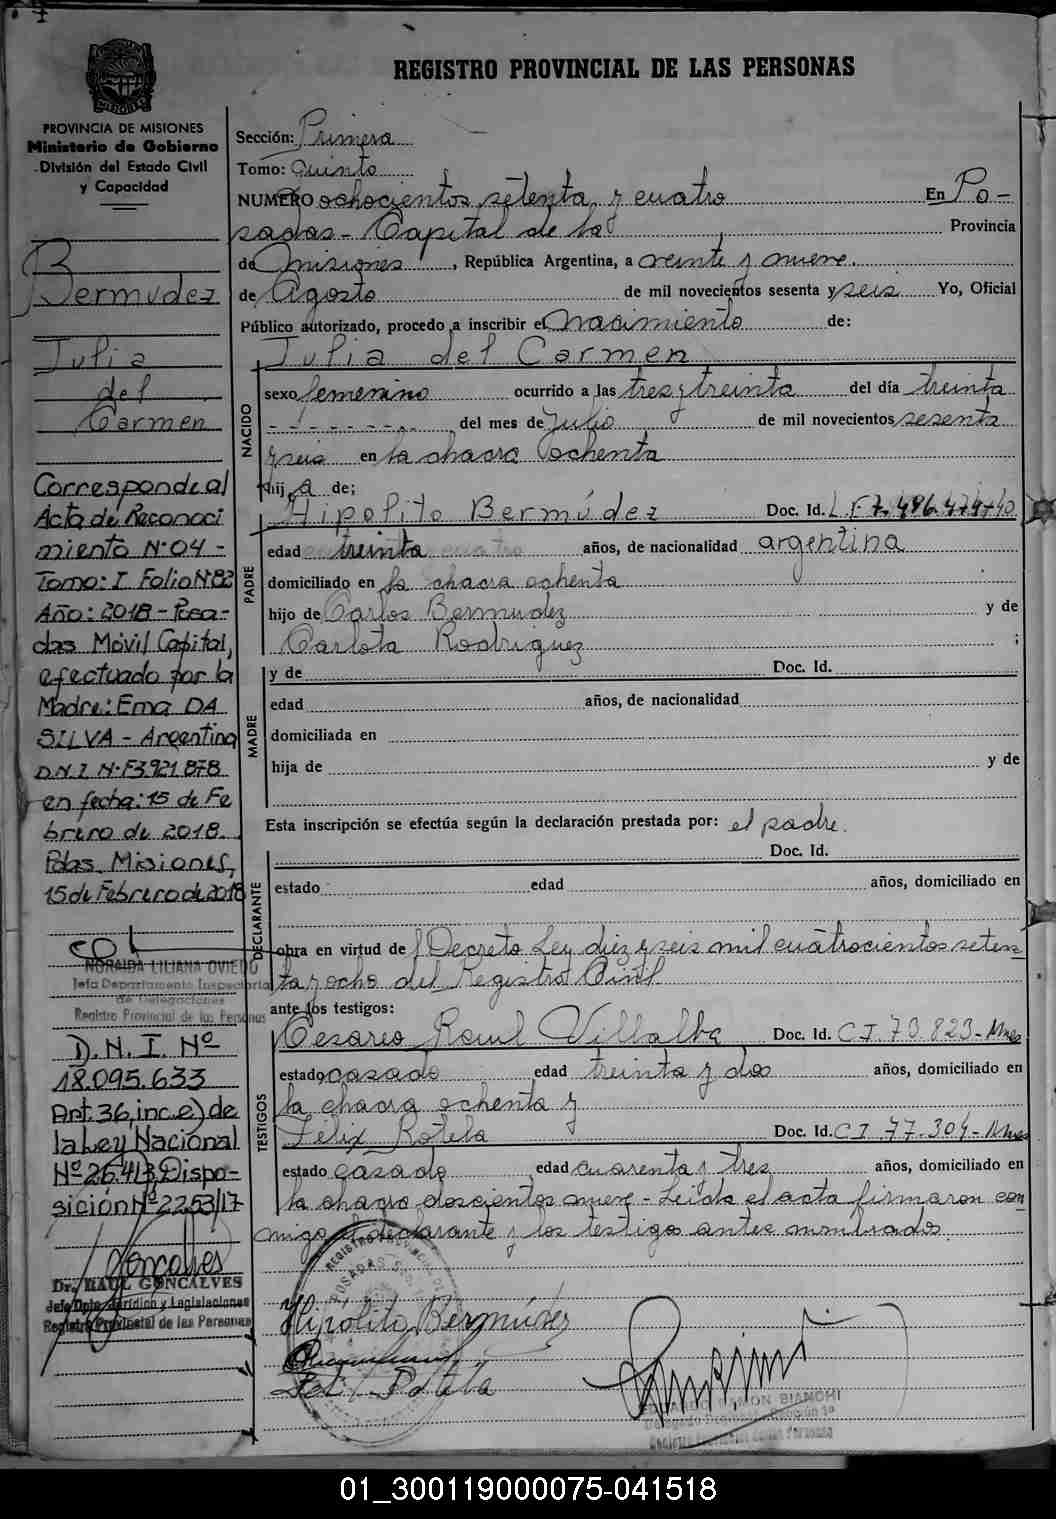 REGISTRO PROVINCIAL DE LAS PERSONAS
PROVINCIA DE MISIONES
Ministerio de Gobierno
División del Estado Civil
y Capacidad
Bermudez
Julia
del
Carmen
Corresponde al
Acta de Reconoci
miento Nº 04 -
Tomo: I Folio Nº 82
Año: 2018 - Posa-
das Móvil Capital,
efectuado por la
Madre: Ema DA
SILVA - Argentina
D.N.I. Nº F3.921.878
en fecha: 15 de Fe
brero de 2018.
Pdas, Misiones,
15 de Febrero de 2018
NORAIDA LILIANA OVIEDO
Jefa Departamento Inspectoria
de Delegaciones
Registro Provincial de las Personas
D.N.I. Nº
18.095.633
Art. 36, inc. e) de
la Ley Nacional
Nº 26.413, Dispo-
sición Nº 2253/17
Goncalves
Dr. RAUL GONCALVES
Jefe Dpto. Jurídico y Legislaciones
Registro Provincial de las Personas
Sección: Primera
Tomo: Quinto
NUMERO ochocientos setenta y cuatro En Po-
sadas - Capital de la Provincia
de Misiones, República Argentina, a veinte y nueve.
de Agosto de mil novecientos sesenta y seis Yo, Oficial
Público autorizado, procedo a inscribir el nacimiento de:
Julia del Carmen
NACIDO
sexo femenino ocurrido a las tres y treinta del día treinta
- - - - - - - - del mes de Julio de mil novecientos sesenta
y seis en la chacra ochenta
hija de;
Hipolito Bermúdez Doc. Id. 7.496.474
PADRE
edad treinta años, de nacionalidad argentina
domiciliado en la chacra ochenta
hijo de Carlos Bermudez y de
Carlota Rodriguez ;
MADRE
y de Doc. Id.
edad años, de nacionalidad
domiciliada en
hija de y de
Esta inscripción se efectúa según la declaración prestada por: el padre.
DECLARANTE
Doc. Id.
estado edad años, domiciliado en
obra en virtud del Decreto Ley diez y seis mil cuatrocientos seten
ta y ocho del Registro Civil
ante los testigos:
TESTIGOS
Cesareo Raul Villalba Doc. Id. C.I. 70.823 - Mnes
estado casado edad treinta y dos años, domiciliado en
la chacra ochenta y
Félix Rotela Doc. Id. C.I. 77.304 - Mnes
estado casado edad cuarenta y tres años, domiciliado en
la chacra doscientos nueve - Leida el acta firmaron con
migo el declarante y los testigo antes nombrado.
Hipólito Bermúdez
Rotela
EDUARDO RAMON BIANCHI
01_300119000075-041518